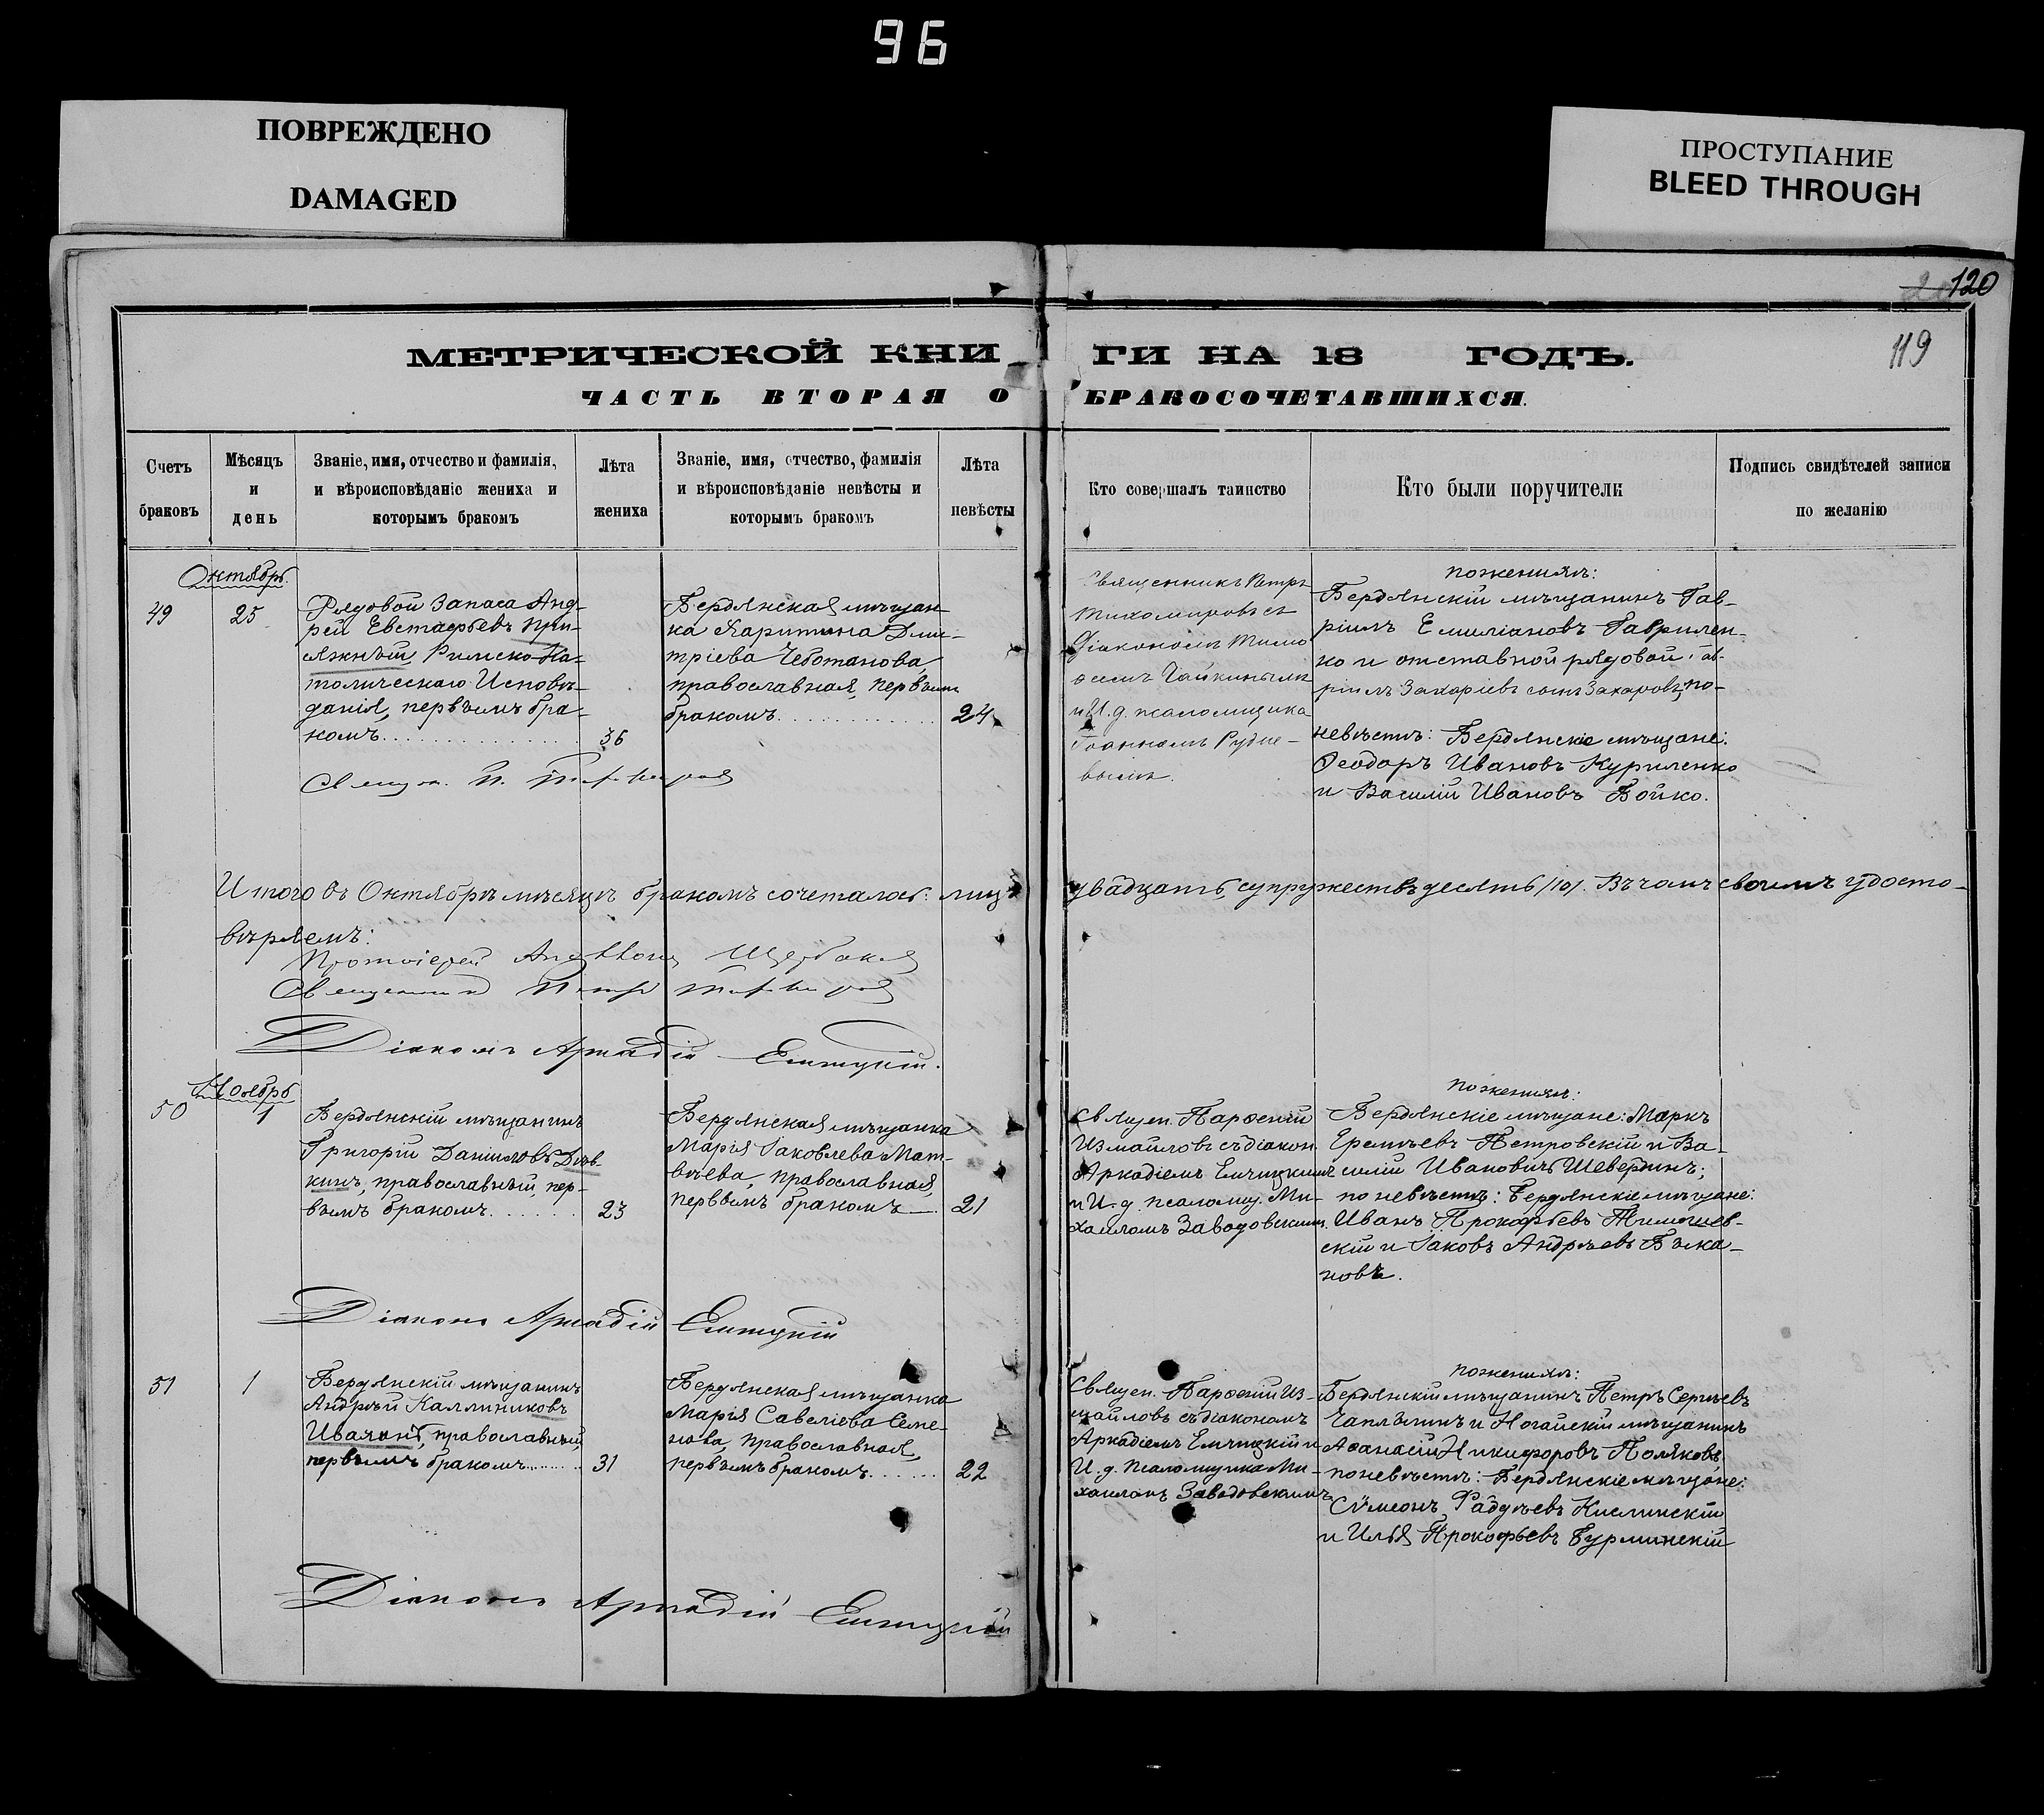 96
ПОВРЕЖДЕНО
DAMAGED
ПРОСТУПАНИЕ
BLEED THROUGH
120
119
МЕТРИЧЕСКОЙ КНИ
ГИ НА 18 ГОДЪ.
ЧАСТЬ ВТОРАЯ О
БРАКОСОЧЕТАВШИХСЯ.
Счетъ
браковъ
Мѣсяцъ
и
день
Званіе, имя, отчество и фамилія,
и вѣроисповѣданіе жениха и
которымъ бракомъ
Лѣта
жениха
Званіе, имя, отчество, фамилія
и вѣроисповѣданіе невѣсты и
которымъ бракомъ
Лѣта
невѣсты
Кто совершалъ таинство
Кто были поручители
Подпись свидѣтелей записи
по желанію
Октябрь.
49
25
Рядовой Запаса Анд-
рей Евстафьевъ При-
сяжный Римско-Ка-
толическаго Исповѣ-
данія, первымъ бра-
комъ
36
Бердянская мѣщан-
ка Харитина Дми-
тріева Чеботанова,
православная, первымъ
бракомъ
24
Священникъ Петръ
Тихомировъ съ
Діакономъ Тимо
ѳеемъ Чайкинымъ
и И. д. псаломщика
Іоанномъ Рудне-
вымъ.
по женихѣ:
Бердянскій мѣщанинъ Гав-
ріилъ Емиліановъ Гаврилен-
ко и отставной рядовой Гав-
ріилъ Захаріевъ сынъ Захаровъ, по-
невѣстѣ: Бердянскіе мѣщане:
Ѳеодоръ Ивановъ Куриленко
и Василій Ивановъ Бойко.
Свящ. П. Тихомировъ
Итого въ Октябрѣ мѣсяцѣ бракомъ сочеталось: лицъ двадцать, супружествъ десять /10/. Въ чемъ своимъ удосто-
вѣряемъ:
Протоіерей Щербаковъ
Священникъ Петръ Тихомировъ
Діаконъ Аркадій Емчицкій.
Ноябрь
50
1
Бердянскій мѣщанинъ
Григорій Даниловъ Дѣв-
кинъ, православный, пер-
вымъ бракомъ
23
Бердянская мѣщанка
Марія Іаковлева Мат-
вѣева, православная,
первымъ бракомъ
21
Священ. Парѳеній
Измайловъ съ діакон.
Аркадіемъ Емчицкимъ
и И. д. псаломщ. Ми-
хаиломъ Заводовскимъ.
по женихѣ:
Бердянскіе мѣщане: Маркъ
Еремѣевъ Петровскій и Ва-
силій Ивановичъ Шевердинъ;
по невѣстѣ: Бердянскіе мѣщане:
Иванъ Прокофьевъ Тимошев-
скій и Іаковъ Андреевъ Бѣка-
новъ.
Діаконъ Аркадій Емчицкій
51
1
Бердянскій мѣщанинъ
Андрей Каллиниковъ
православный
первымъ бракомъ
31
Бердянская мѣщанка
Марія Савеліева Семе-
нова, православная,
первымъ бракомъ
22
Священ. Парѳеній Из-
майловъ съ діакономъ
Аркадіемъ Емчицкій и
И. д. Псаломщика Ми-
хаиломъ Заводовскимъ
по женихѣ:
Бердянскій мѣщанинъ Петръ Сергѣевъ
Чаплыгинъ и Ногайскій мѣщанинъ
Аѳанасій Никифоровъ Поляковъ,
по невѣстѣ: Бердянскіе мѣщане:
Сѵмеонъ Фадѣевъ Кислинскій
и Илья Прокофьевъ Бурлинскій
Діаконъ Аркадій Емчицкій